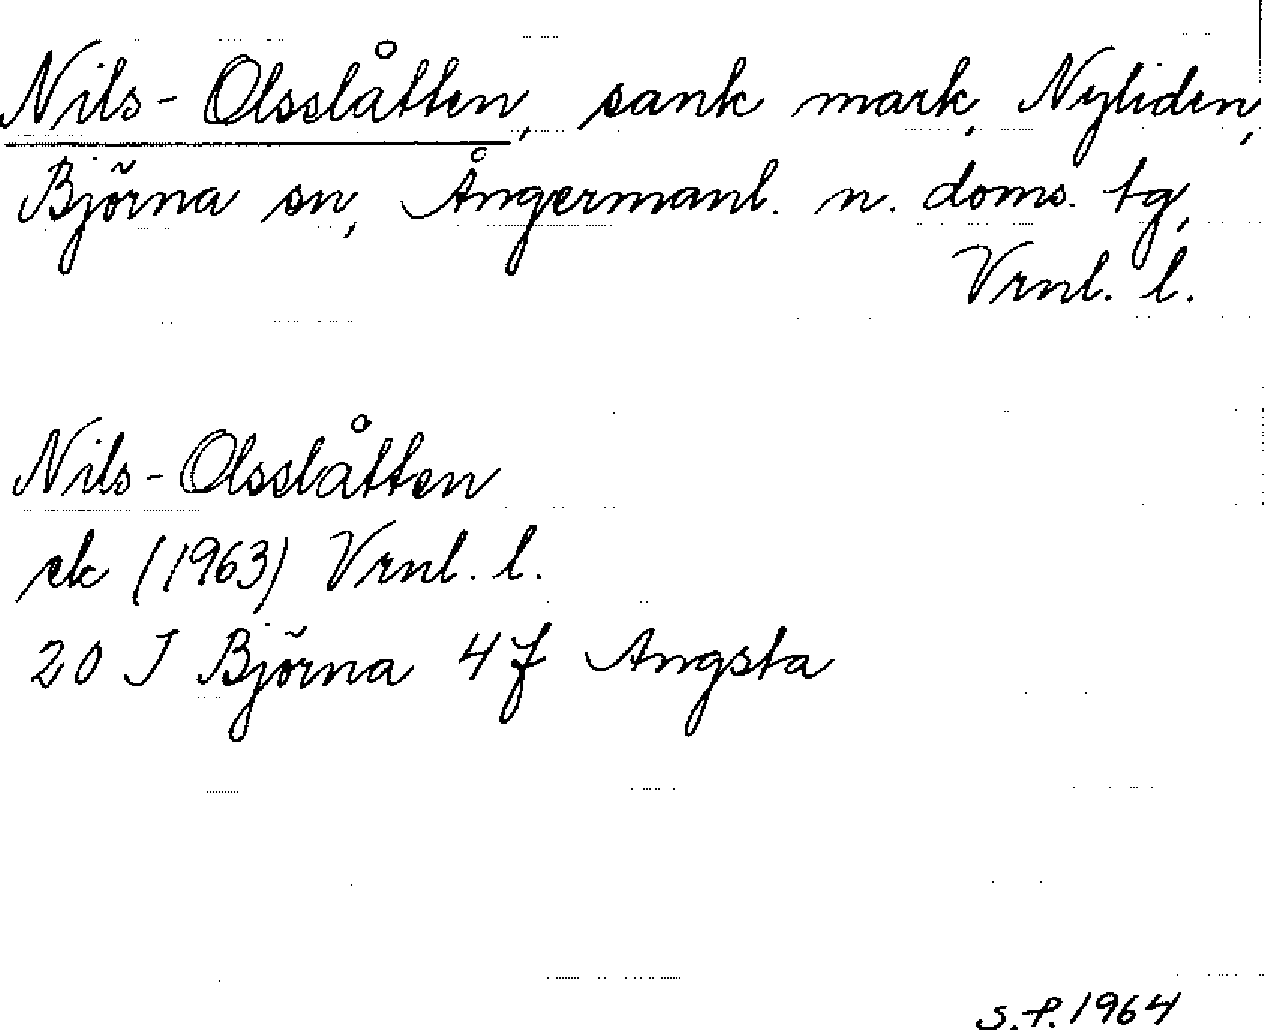 Nils-Olsslåtten, sank mark, Nyliden,
Björna sn, Ångermanl. n. doms. tg,
Vrnl. l.
Nils-Olsslåtten
ek (1963) Vrnl. l.
20 J Björna 4f Angsta
S.P. 1964